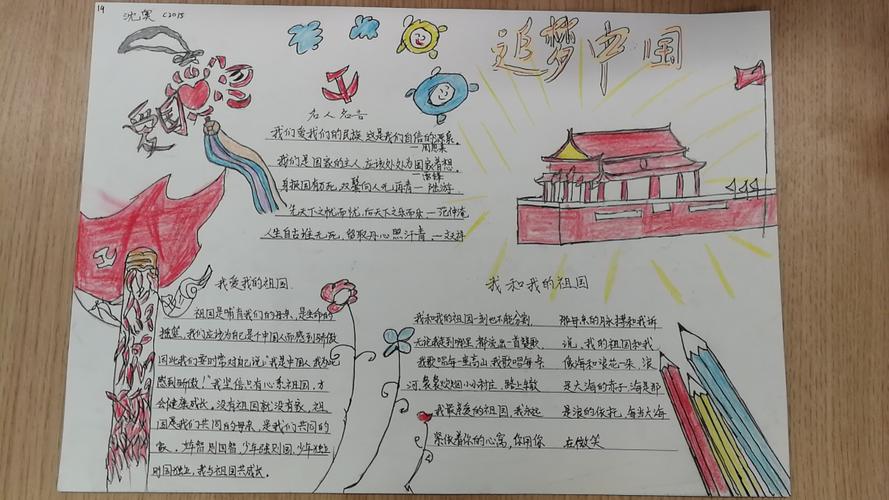 19 沈
C2015
追梦中国
爱国
名人名言
我们爱我们的民族,这是我们自信的源泉。
—周恩来
我们是国家的主人,应该处处为国家着想。
—雷锋
身报国有死,双鬓向人无再青—陆游
先天下之忧而忧,后天下之乐而乐—范仲淹
人生自古谁无死,留取丹心照汗青。—文天祥
我爱我的祖国
祖国是哺育我们的母亲,是生命的
摇篮,我们应该为自己是个中国人而感到骄傲
因此我们要时常对自己说:“我是中国人,我为此
感到骄傲!”我坚信只有心系祖国,才
会健康成长,没有祖国就没有家,祖
国是我们共同的母亲,是我们共同的
家。少年智则国智,少年强则国,少年独立
则国独立,我与祖国共成长。
我和我的祖国
我和我的祖国一刻也不能分割,
无论我走到哪里都流出一首赞歌
我歌唱每一座高山,我歌唱每条
河,袅袅炊烟小小村庄,路上车辙
我最亲爱的祖国,我永远
紧依着你的心窝,你用你
那母亲的脉搏和我诉
说,我的祖国和我
像海和浪花一朵,浪
是大海的赤子,海是那
是浪的依托,每当大海
在微笑